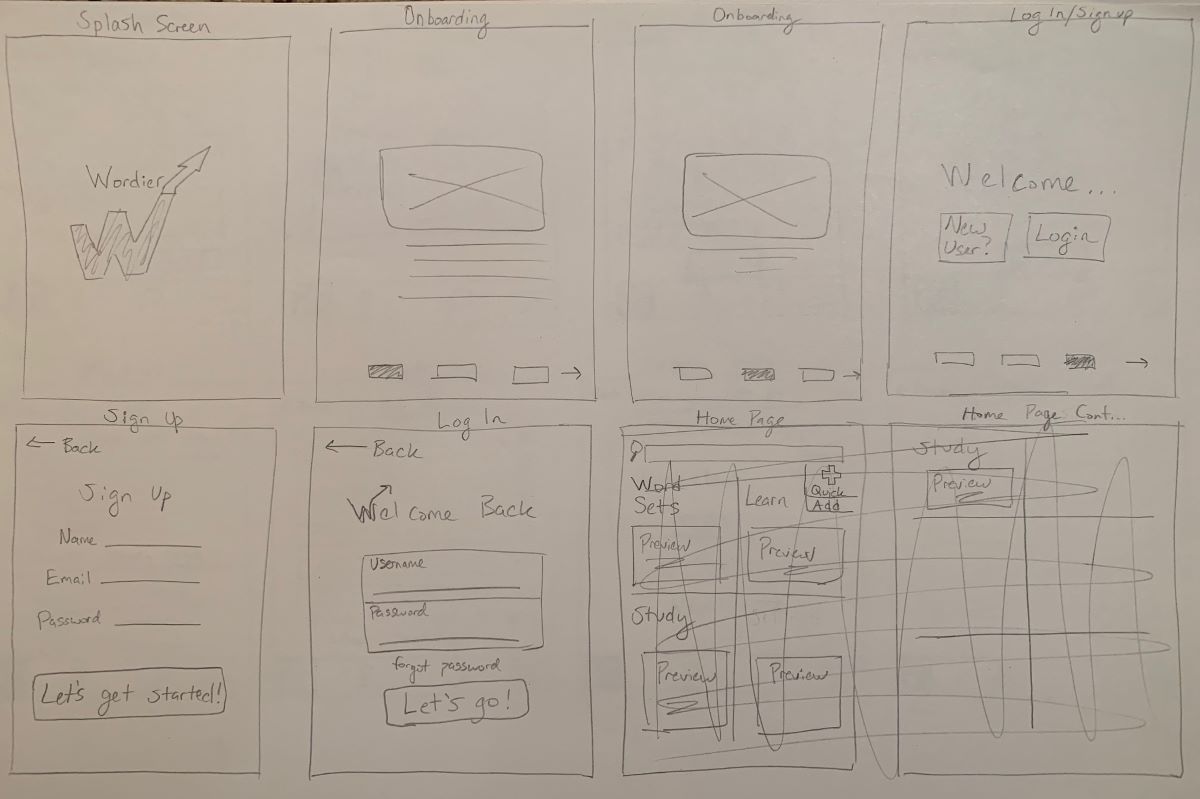 Splash Screen
Wordier
Onboarding
Onboarding
Log In/Sign up
Welcome...
New
User?
Login
Sign Up
← Back
Sign Up
Name
Email
Password
Let's get started!
Log In
← Back
Welcome Back
Username
Password
forgot password
Let's go!
Home Page
Word
Sets
Learn
Quick
Add
Preview
Preview
Study
Preview
Preview
Home Page Cont...
Study
Preview